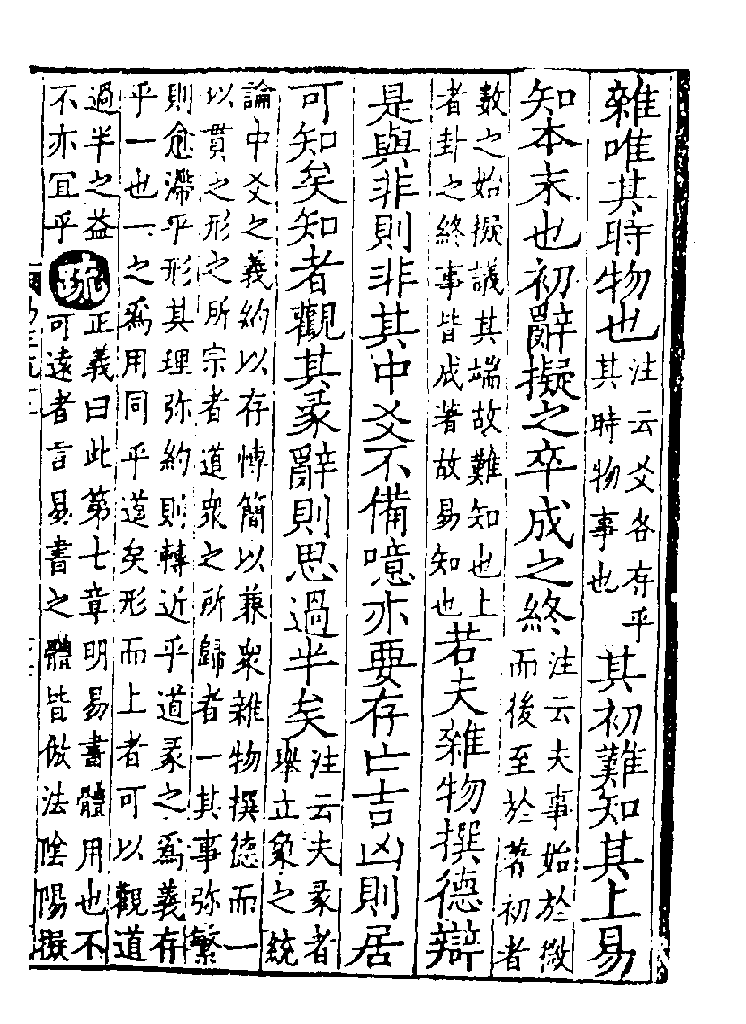 雜唯其時物也
注云爻各存乎
其時物事也
其初難知其上易
知本末也初辭擬之卒成之終
注云夫事始於微
而後至於著初者
數之始擬議其端故難知也上
者卦之終事皆成著故易知也
若夫雜物撰德辯
是與非則非其中爻不備噫亦要存亡吉凶則居
可知矣知者觀其彖辭則思過半矣
注云夫彖者
舉立象之統
論中爻之義約以存博簡以兼衆雜物撰德而一
以貫之形之所宗者道衆之所歸者一其事弥繁
則愈滯乎形其理弥約則轉近乎道彖之爲義存
乎一也一之爲用同乎道矣形而上者可以觀道
過半之益
不亦宜乎
疏
正義曰此第七章明易書體用也不
可遠者言易書之體皆倣法陰陽擬